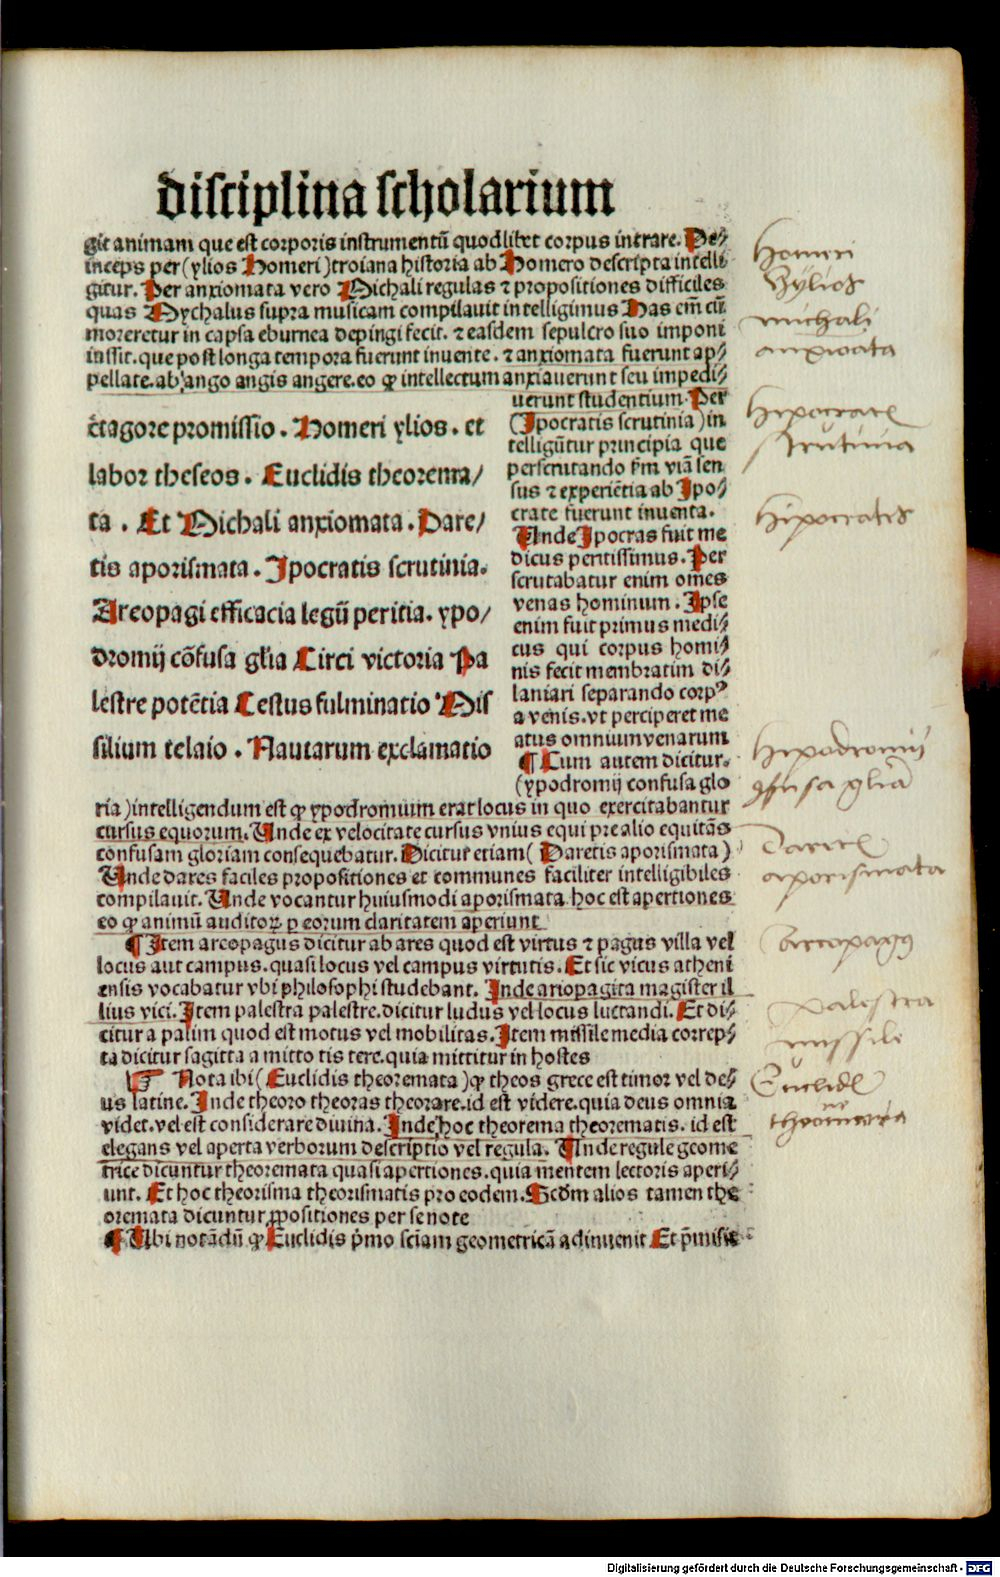 disciplina scholarium
git animam que est corporis instrumentū quodlibet corpus intrare. De⸗
inceps per (ylios Homeri) troiana historia ab Homero descripta intelli
gitur. Per anxiomata vero Michali regulas ⁊ propositiones difficiles
quas Mychalus supra musicam compilauit intelligimus Has em̄ cū
moreretur in capsa eburnea depingi fecit. ⁊ easdem sepulcro suo imponi
iussit. que post longa tempora fuerunt inuente. ⁊ anxiomata fuerunt ap⸗
pellate. ab ango angis angere. eo ꝙ intellectum anxiauerunt seu impedi⸗
uerunt studentium. Per
(Ipocratis scrutinia) in
telligūtur principia que
perscrutando fm̄ viā sen
sus ⁊ experiētia ab Ipo⸗
crate fuerunt inuenta.
Unde Ipocras fuit me
dicus peritissimus. Per
scrutabatur enim omēs
venas hominum. Ipse
enim fuit primus medi⸗
cus qui corpus homi⸗
nis fecit membratim di⸗
laniari separando corpꝰ
a venis. vt perciperet me
atus omnium venarum
¶ Cum autem dicitur.
(ypodromij confusa glo
ctagore promissio. Homeri ylios. et
labor theseos. Euclidis theorema/
ta. Et Michali anxiomata. Dare/
tis aporismata. Ipocratis scrutinia.
Areopagi efficacia legū peritia. ypo/
dromij cōfusa gl̄ia Circi victoria Pa
lestre potētia Cestus fulminatio Mis
silium telaio. Nautarum exclamatio
ria) intelligendum est ꝙ ypodromium erat locus in quo exercitabantur
cursus equorum. Unde ex velocitate cursus vnius equi pre alio equitās
confusam gloriam consequebatur. Dicitur etiam (Daretis aporismata)
Unde dares faciles propositiones et communes faciliter intelligibiles
compilauit. Unde vocantur huiusmodi aporismata hoc est apertiones
eo ꝙ animū auditoꝝ ꝑ eorum claritatem aperiunt
¶ Item areopagus dicitur ab ares quod est virtus ⁊ pagus villa vel
locus aut campus. quasi locus vel campus virtutis. Et sic vicus atheni
ensis vocabatur vbi philosophi studebant. Inde ariopagita magister il
lius vici. Item palestra palestre. dicitur ludus vel locus luctandi. Et di⸗
citur a palim quod est motus vel mobilitas. Item missile media correp⸗
ta dicitur sagitta a mitto tis tere. quia mittitur in hostes
☞ Nota ibi (Euclidis theoremata) ꝙ theos grece est timor vel de⸗
us latine. Inde theoro theoras theorare. id est videre. quia deus omnia
videt. vel est considerare diuina. Inde hoc theorema theorematis. id est
elegans vel aperta verborum descriptio vel regula. Unde regule geome
trice dicuntur theoremata quasi apertiones. quia mentem lectoris aperi⸗
unt. Et hoc theorisma theorismatis pro eodem. Scdm alios tamen the
oremata dicuntur ꝓpositiones per se note
¶ Ubi notādū ꝙ Euclidis p̄mo sciam geometricā adinuenit Et p̄misit
Homeri
Hylios
michali
anxioata
hipocrate
scrutinia
hipocratis
hipodromij
ꝯfusa gliā
Daretis
aporismata
Areopagꝰ
palestra
missile
Euclidis
theoremata
Digitalisierung gefördert durch die Deutsche Forschungsgemeinschaft - DFG